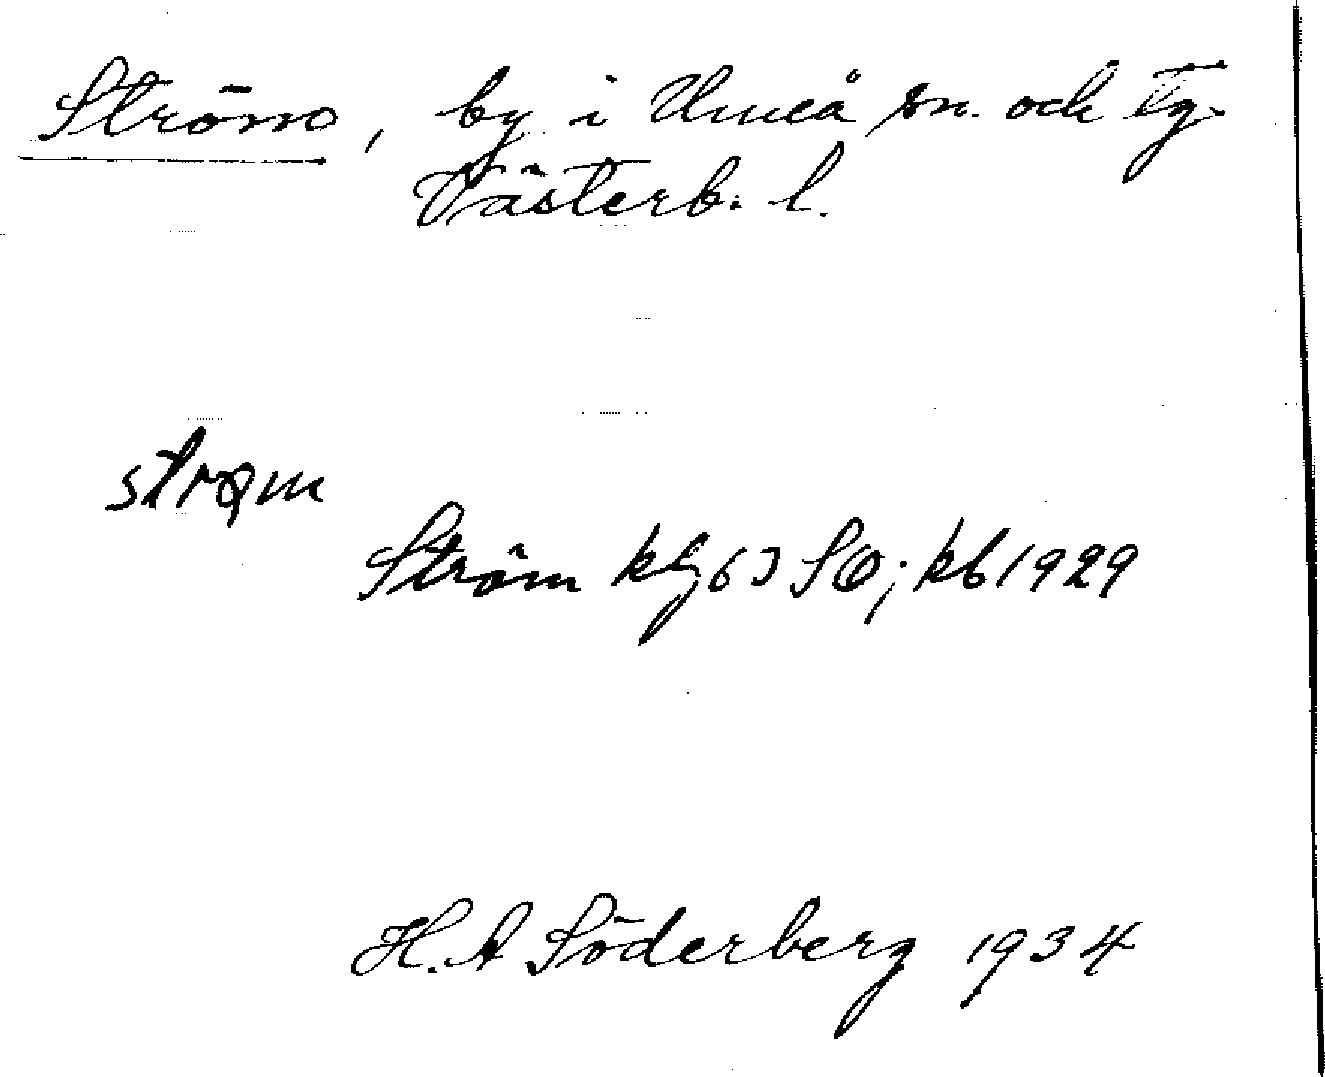 Ström, by i Umeå sn. och tg.
Västerb. l.
strǫm
Ström kbg 63 SO; kb 1929
H. A Söderberg 1934